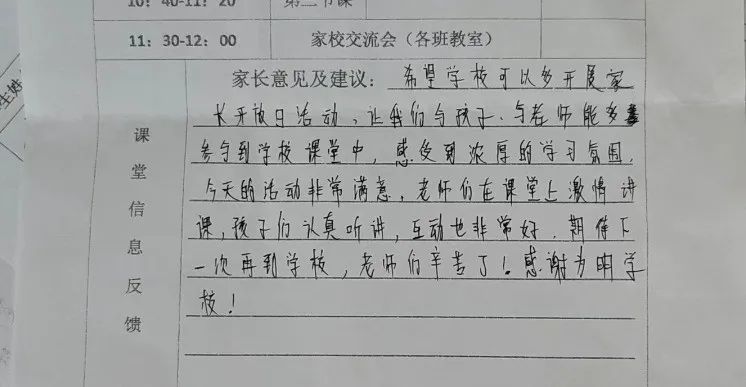 10：40-11：20 第二节课
11：30-12：00 家校交流会（各班教室）
课堂信息反馈
家长意见及建议：希望学校可以多开展家
长开放日活动，让我们与孩子、与老师能多
参与到学校课堂中，感受到浓厚的学习氛围，
今天的活动非常满意，老师们在课堂上激情讲
课，孩子们认真听讲，互动也非常好，期待下
一次再到学校，老师们辛苦了！感谢为明学
校！